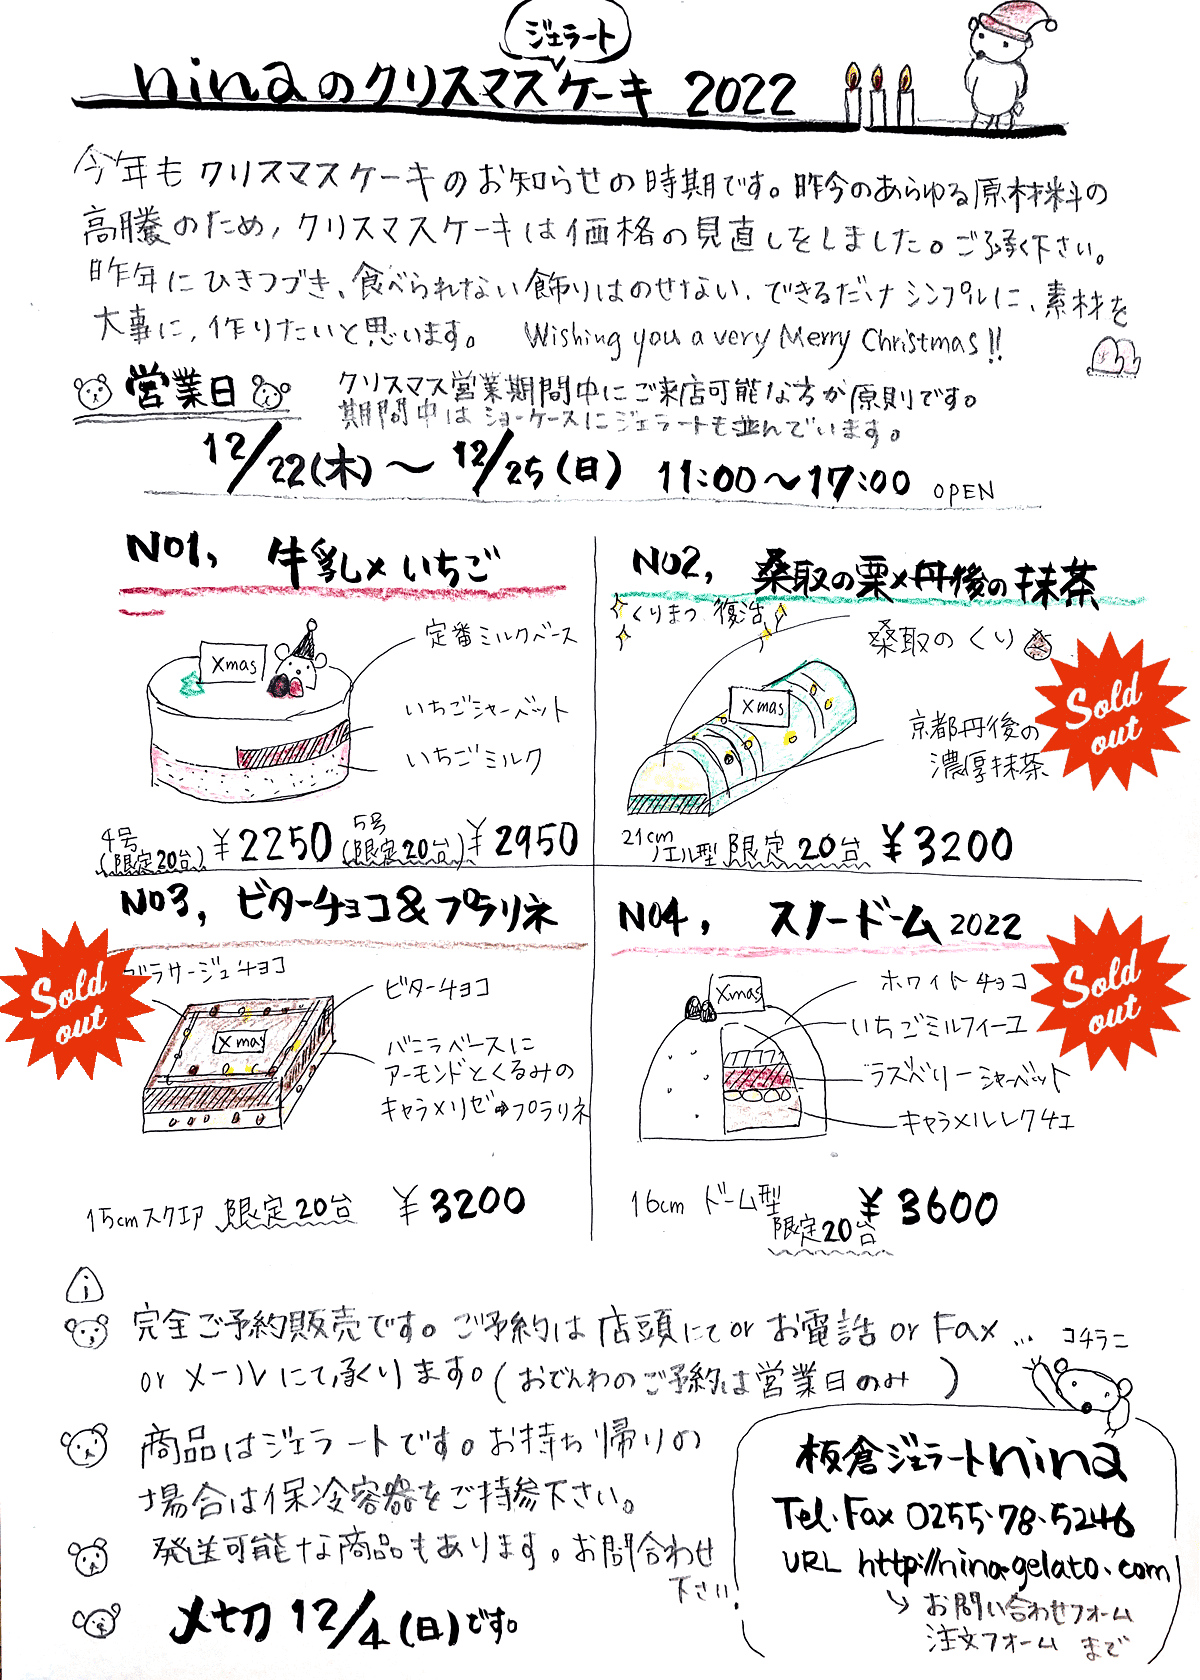 ninaのクリスマスジェラートケーキ 2022
今年もクリスマスケーキのお知らせの時期です。昨今のあらゆる原材料の
高騰のため、クリスマスケーキは価格の見直しをしました。ご了承下さい。
昨年にひきつづき、食べられない飾りはのせない、できるだけシンプルに、素材を
大事に、作りたいと思います。 Wishing you a very Merry Christmas!!
営業日
クリスマス営業期間中にご来店可能な方が原則です。
期間中はショーケースにジェラートも並んでいます。
12/22(木)〜12/25(日) 11:00〜17:00 OPEN
NO1, 牛乳×いちご
Xmas
定番ミルクベース
いちごシャーベット
いちごミルク
4号
(限定20台) ¥2250
5号
(限定20台) ¥2950
NO2, 桑取の栗×丹後の抹茶
くりまつ 復活
桑取のくり
Xmas
京都丹後の
濃厚抹茶
Sold
out
21cm
ノエル型 限定20台 ¥3200
NO3, ビターチョコ&プラリネ
グラサージュチョコ
Sold
out
Xmas
ビターチョコ
バニラベースに
アーモンドとくるみの
キャラメリゼ⇒プラリネ
15cmスクエア 限定20台 ¥3200
NO4, スノードーム2022
Xmas
ホワイトチョコ
いちごミルフィーユ
ラズベリーシャーベット
キャラメルレクチェ
Sold
out
16cm ドーム型 ¥3600
限定20台
i
完全ご予約販売です。ご予約は店頭にてorお電話or Fax...
orメールにて承ります。(おでんわのご予約は営業日のみ)
商品はジェラートです。お持ち帰りの
場合は保冷容器をご持参下さい。
発送可能な商品もあります。お問合わせ
下さい!
〆切12/4(日)です。
コチラニ
板倉ジェラートnina
Tel.Fax 0255-78-5246
URL http://nina-gelato.com
お問い合わせフォーム
注文フォーム まで